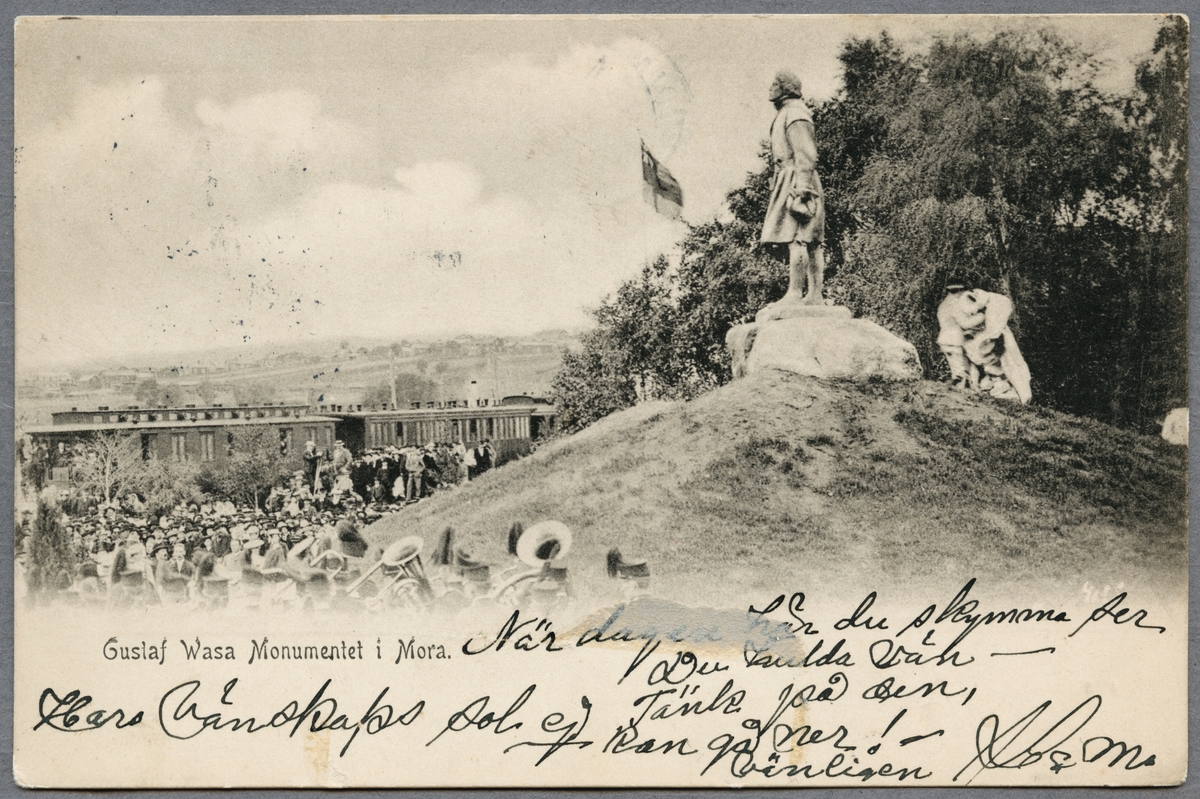 Gustaf Wasa Monumentet i Mora.
När dagen här du skymma ser
Du hulda vän —
Tänk på den,
Hars Vänskaps sol ej kan gå ner! —
Vänligen